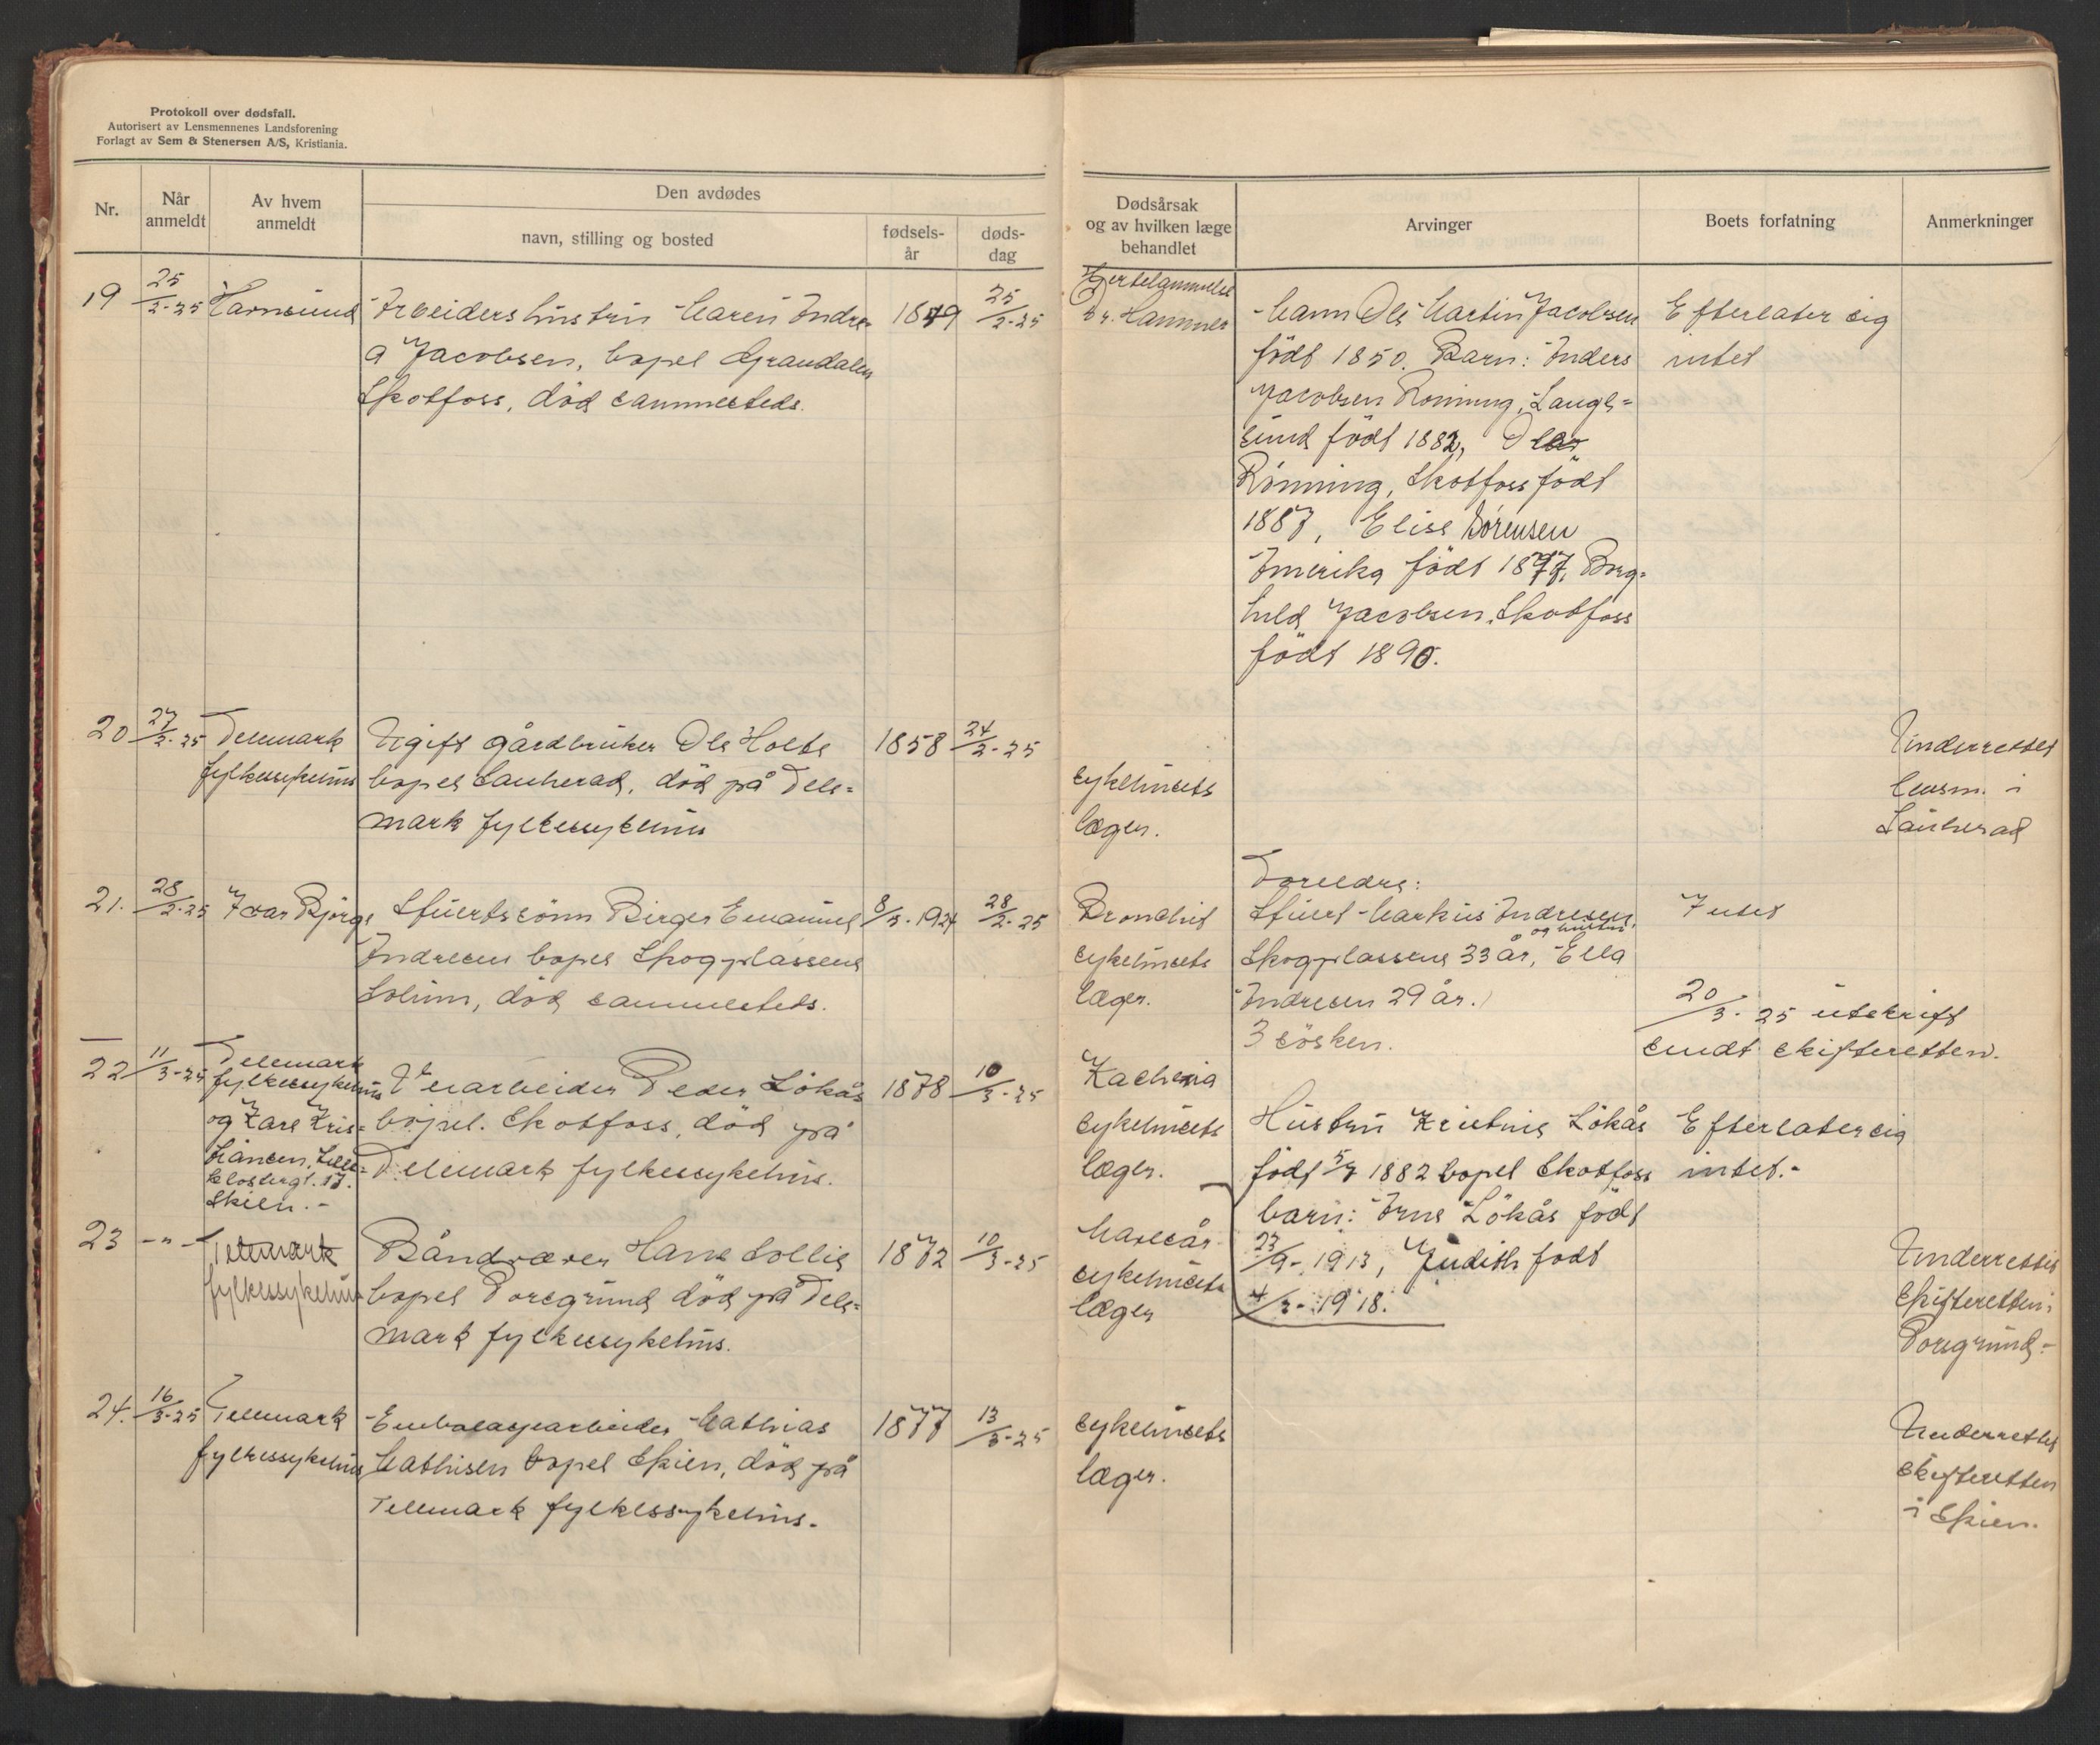 Protokoll over dødsfall.
Autorisert av Lensmennenes Landsforening
Forlagt av Sem & Stenersen A/S, Kristiania.
Nr.
Når anmeldt
Av hvem anmeldt
Den avdødes
navn, stilling og bosted
fødsels-år
døds-dag
Dødsårsak og av hvilken læge behandlet
Arvinger
Boets forfatning
Anmerkninger
19 25/2-25 Arbeidershustru Maren Andre- 1849 25/2-25
a Jacobsen, bopel Grandalen
Skotfoss, död sammesteds.
Hjertelammelse
Dr. Hammer
Mann Ole Martin Jacobsen
född 1850. Barn: Anders
Jacobsen Rönning, Lange=
sund född 1882, Olav
Rönning, Skotfoss född
1887, Elise Sörensen
Amerika född 1897, Borg=
hild Jacobsen, Skotfoss
född 1890.
Efterlater sig
intet
20 27/2-25 Telemark fylkessykehus
Ugift gårdbruker Ole Holte 1858 24/2-25
bopel Sauherad, död på Tele=
mark fylkessykehus
sykehusets
læger.
Underrettet
lensm. i
Sauherad
21. 28/2-25 Ivar Bjørge
Stuertssönn Birger Emanuel 8/5-1924 28/2-25
Andresen bopel Skogplassene
Solum, död sammesteds.
Bronchit
sykehusets
læger.
Foreldre:
Stuert Markus Andresen,
og hustru
Skogplassene 33 år, Ella
Andresen 29 år.
3 søsken.
Intet
20/3-25 utskrift
sendt skifteretten.
22 11/3-25 Telemark
fylkessykehus
og Karl Kris=
tiansen, Lille=
klostergt. 17.
Skien.-
Veiarbeider Peder Lökås 1878 10/3-25
bopel. Skotfoss, död på
Telemark fylkessykehus.
Kachexia
sykehusets
læger.
Hustru Kristine Lökås
född 5/7 1882 bopel Skotfoss
barn: Arne Lökås född
27/9-1913, Judith född
4/3-1918.
Efterlater sig
intet.-
23 -"- Telemark
fylkessykehus
Båndvæver Hans Sollie 1872 10/3-25
bopel Porsgrund död på Tele=
mark fylkessykehus.
Mavesår
sykehusets
læger
Underrettet
skifteretten i
Porsgrund.-
24. 16/3-25 Telemark
fylkessykehus
Emballasjearbeider Mathias 1877 13/3-25
Mathisen bopel Skien, död på
Telemark fylkessykehus.
sykehusets
læger.
Underrettet
skifteretten
i Skien.